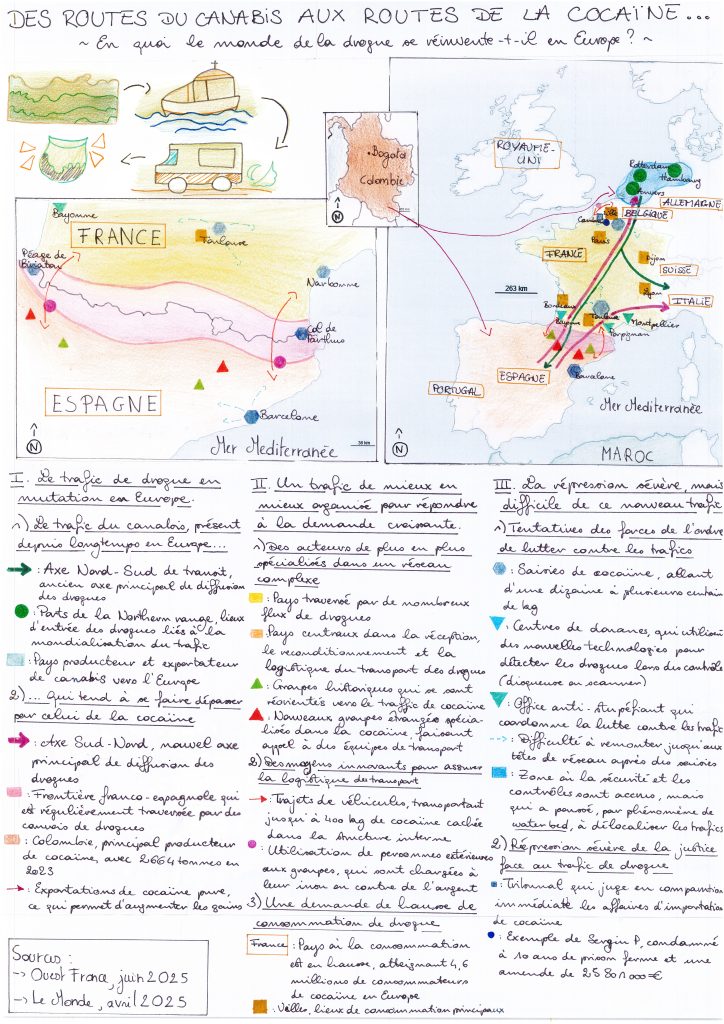 DES ROUTES DU CANABIS AUX ROUTES DE LA COCAÏNE...
~ En quoi le monde de la drogue se réinvente-t-il en Europe ? ~
Bogota
Colombie
N
ROYAUME-
UNI
Rotterdam
Hambourg
Anvers
ALLEMAGNE
Lille
BELGIQUE
Paris
FRANCE
Dijon
SUISSE
263 km
Lyon
ITALIE
Bordeaux
Bayonne
Toulouse
Montpellier
Perpignan
ESPAGNE
Barcelone
PORTUGAL
Mer Mediterranée
MAROC
N
Bayonne
FRANCE
Toulouse
Péage de
Biriatou
Narbonne
Col de
Perthus
ESPAGNE
Barcelone
Mer Mediterranée
38 km
N
I. Le trafic de drogue en
mutation en Europe.
1) Le trafic du canabis, présent
depuis longtemps en Europe...
: Axe Nord-Sud de transit,
ancien axe principal de diffusion
des drogues
: Ports de la Northern range, lieux
d'entrée des drogues liés à la
mondialisation du trafic
: Pays producteur et exportateur
de canabis vers l'Europe
2) ... qui tend à se faire dépasser
par celui de la cocaïne
: Axe Sud-Nord, nouvel axe
principal de diffusion des
drogues
: Frontière franco-espagnole qui
est régulièrement traversée par des
convois de drogues
: Colombie, principal producteur
de cocaïne, avec 2664 tonnes en
2023
: Exportations de cocaïne pure,
ce qui permet d'augmenter les gains
Sources :
-> Ouest France, juin 2025
-> Le Monde, avril 2025
II. Un trafic de mieux en
mieux organisé pour répondre
à la demande croissante.
1) Des acteurs de plus en plus
spécialisés dans un réseau
complexe
: Pays traversé par de nombreux
flux de drogues
: Pays centraux dans la réception,
le reconditionnement et la
logistique du transport des drogues
: Groupes historiques qui se sont
réorientés vers le trafic de cocaïne
: Nouveaux groupes étrangers spécia-
lisés dans la cocaïne, faisant
appel à des équipes de transport
2) Des moyens innovants pour assurer
la logistique de transport
: Trajets de véhicules, transportant
jusqu'à 400 kg de cocaïne cachée
dans la structure interne
: Utilisation de personnes extérieures
aux groupes, qui sont chargées à
leur insu ou contre de l'argent
3) Une demande de hausse de
consommation de drogue
France : Pays où la consommation
est en hausse, atteignant 4,6
millions de consommateurs
de cocaïne en Europe
: Villes, lieux de consommation principaux
III. La répression sévère, mais
difficile de ce nouveau trafic
1) Tentatives des forces de l'ordre
de lutter contre les trafics
: Saisies de cocaïne, allant
d'une dizaine à plusieurs centaines
de kg
: Centres de douanes, qui utilisent
des nouvelles technologies pour
détecter les drogues lors des contrôles
(disqueuse ou scanner)
: Office anti-stupéfiant qui
coordonne la lutte contre les trafics
: Difficulté à remonter jusqu'aux
têtes de réseau après des saisies
: Zone où la sécurité et les
contrôles sont accrus, mais
qui a poussé, par phénomène de
waterbed, à délocaliser les trafics
2) Répression sévère de la justice
face au trafic de drogue
: Tribunal qui juge en comparution
immédiate les affaires d'importation
de cocaïne
: Exemple de Sergin P, condamné
à 10 ans de prison ferme et une
amende de 25 801 000 €